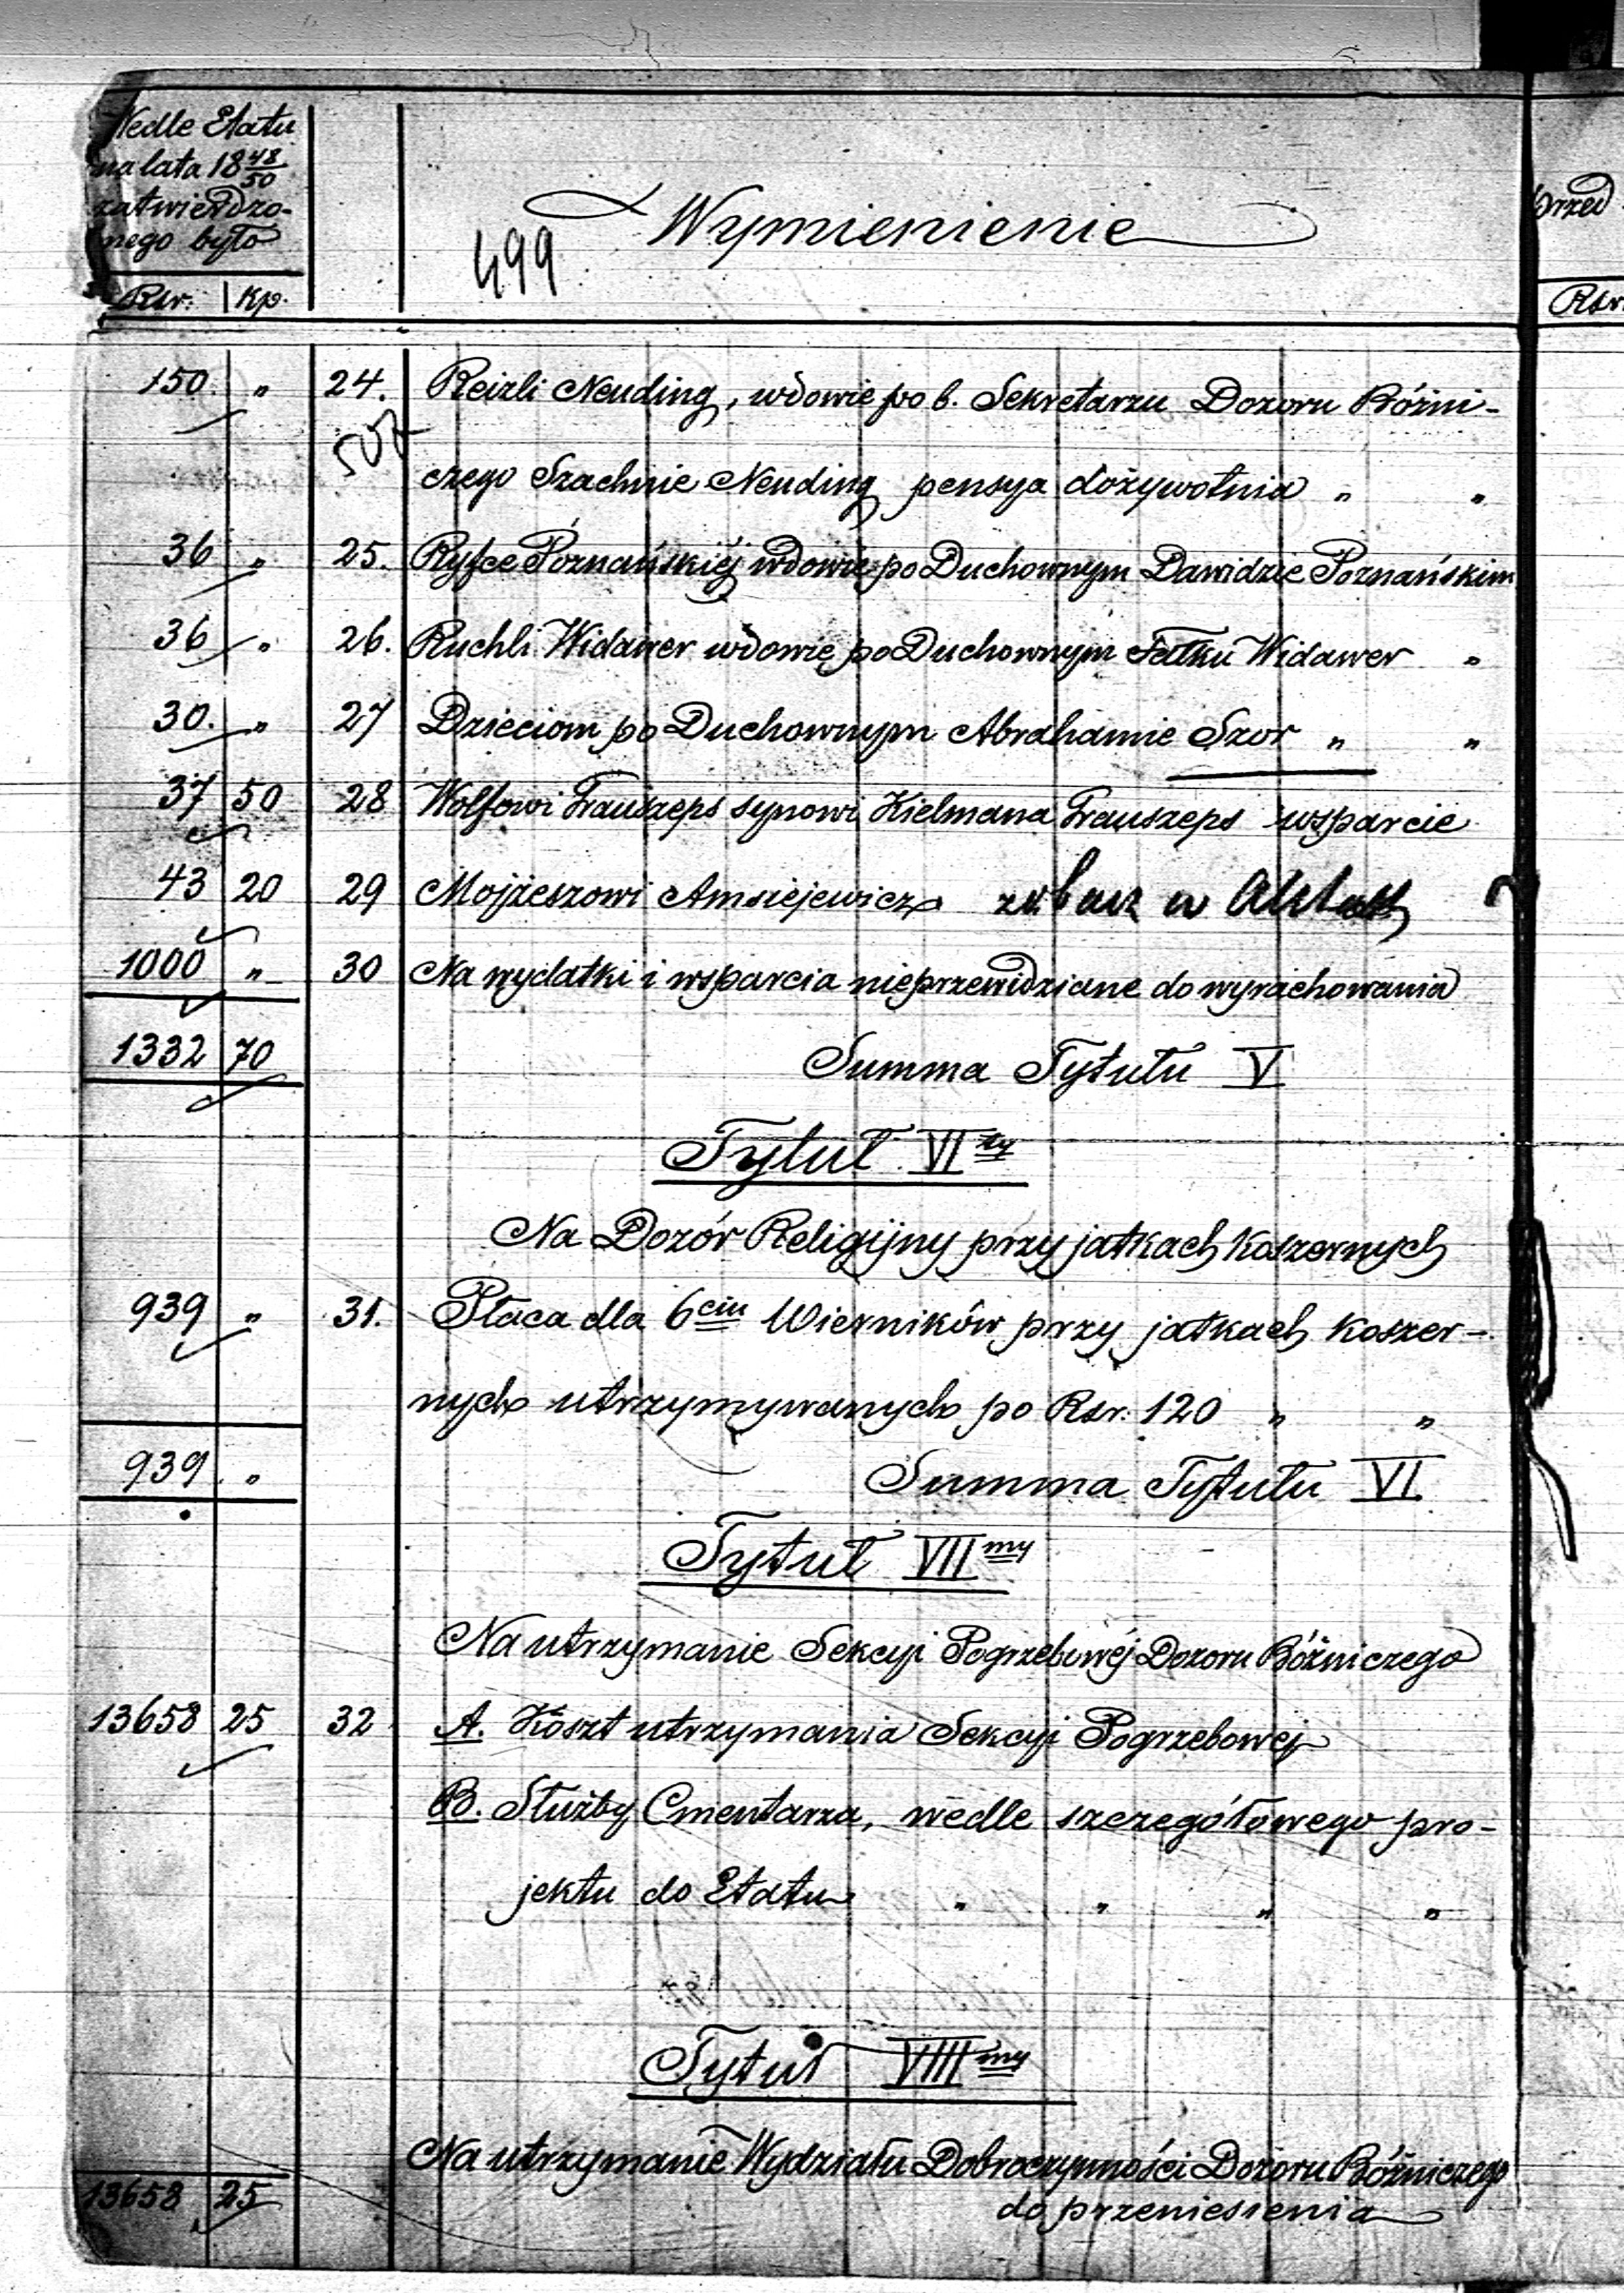 Wedle Etatu
na lata 18 48/50
zatwierdzo-
nego było
Rsr. Kp.
Wymienienie
499
przed
Rsr.
150. " 24. Reizli Neuding, wdowie po b. Sekretarzu Dozoru Bóżni-
507
czego Szachnie Neuding pensya dożywotnia " "
36 " 25. Ryfce Poznańskiéj wdowie po Duchownym Dawidzie Poznańskim
36 " 26. Ruchli Widawer wdowie po Duchownym Fatku Widawer "
30. " 27 Dzieciom po Duchownym Abrahamie Szor " "
37 50 28 Wolfowi Trauszeps synowi Kielmana Trauszeps wsparcie
43 20 29 Mojżeszowi Amsiejewicz zobacz w Aktach
1000 " 30 Na wydatki i wsparcia nieprzewidziane do wyrachowania
1332 70 Summa Tytułu V
Tytuł VI ty
Na Dozór Religijny przy jatkach koszernych
939 " 31. Płaca dla 6 ciu Wierników przy jatkach koszer-
nych utrzymywanych po Rsr. 120 " "
939 " Summa Tytułu VI
Tytuł VII my
Na utrzymanie Sekcyi Pogrzebowéj Dozoru Bóżniczego
13658 25 32 A. Koszt utrzymania Sekcyi Pogrzebowej
B. Służby Cmentarza, wedle szczegółowego pro-
jektu do Etatu " " " "
Tytuł VIII my
Na utrzymanie Wydziału Dobroczynności Dozoru Bóżniczego
13658 25 do przeniesienia